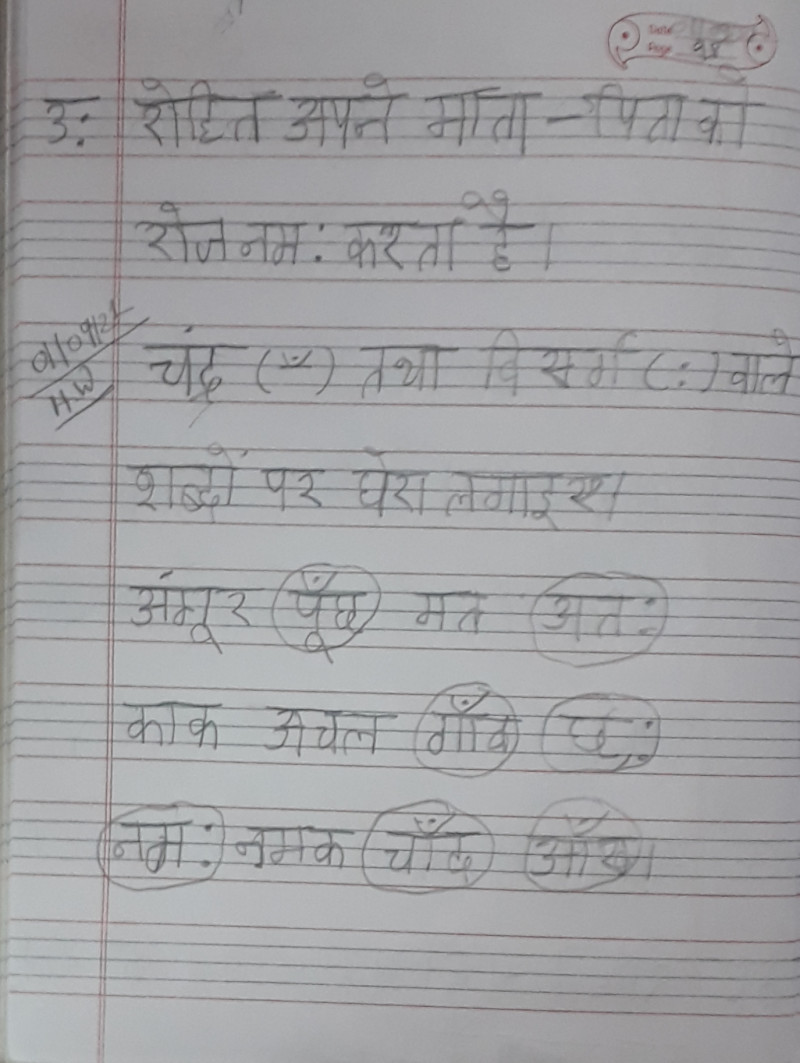 Date
Page 98
उ: रोहित अपने माता-पिता को
रोज नम: करता है।
01/09/21
H.W
चंद्र (ँ) तथा विसर्ग (:) वाले
शब्दों पर घेरा लगाइए।
अंगूर पूँछ मत अत:
काक अचल गाँव छ:
नम: नमक चाँद आँख।